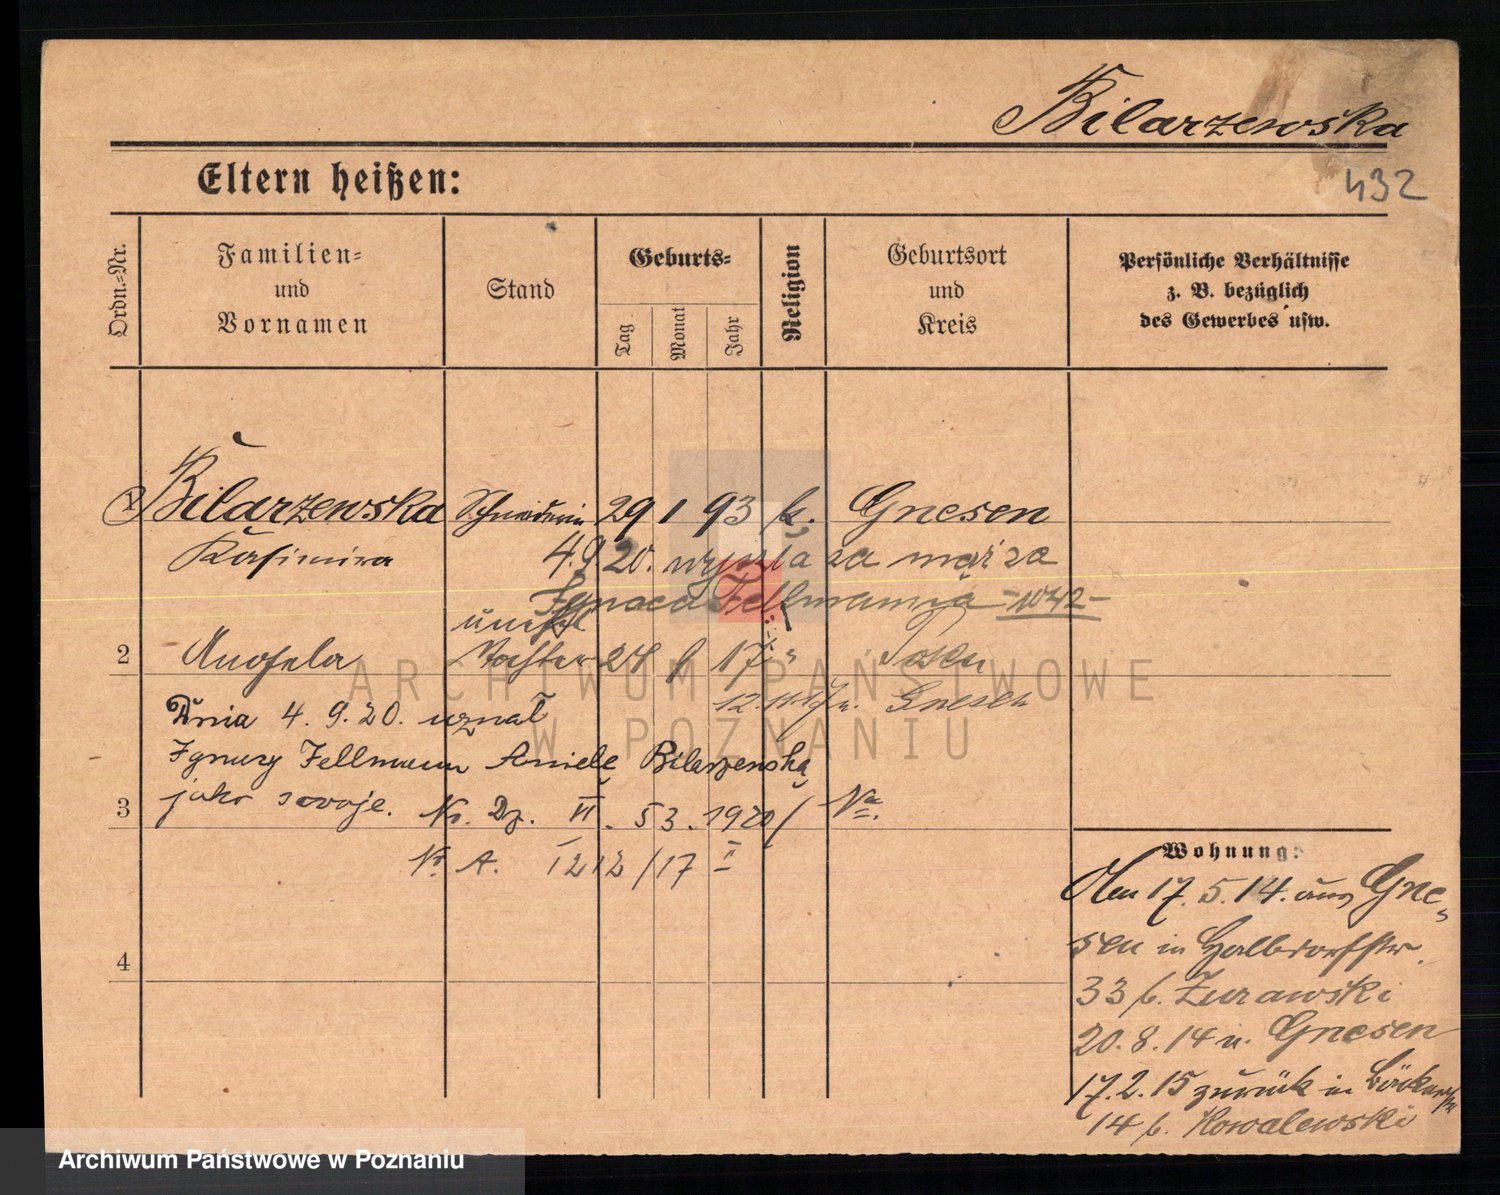 Bilarzewska
432
Eltern heißen:
Ordn.-Nr.
Familien- und Vornamen
Stand
Geburts-
Tag
Monat
Jahr
Religion
Geburtsort und Kreis
Persönliche Verhältnisse z. B. bezüglich des Gewerbes usw.
1 Bilarzewska Schneiderin 29 1 93 k. Gnesen
Kasimira 4.9.20. wyszła za mąż za
Ignaca Fellmanna -1042-
unehel
2 Angela Tochter 24 17 " Posen
12.11.17 n. Gnesen
Dnia 4. 9. 20. uznał
Ignacy Fellmann Anielę Bilarzewską
jako swoje. Nr. Dz. VI. 53. 1920
3
Nr. A. 1212/17 II
4
Wohnung:
Am 17. 5. 14. aus Gne-
sen in Halbdorfstr.
33 b. Zurawski
20. 8. 14 n. Gnesen
17. 2. 15 zurück in Bäckerstr
14 b. Kowalewski
ARCHIWUM PAŃSTWOWE
W POZNANIU
Archiwum Państwowe w Poznaniu